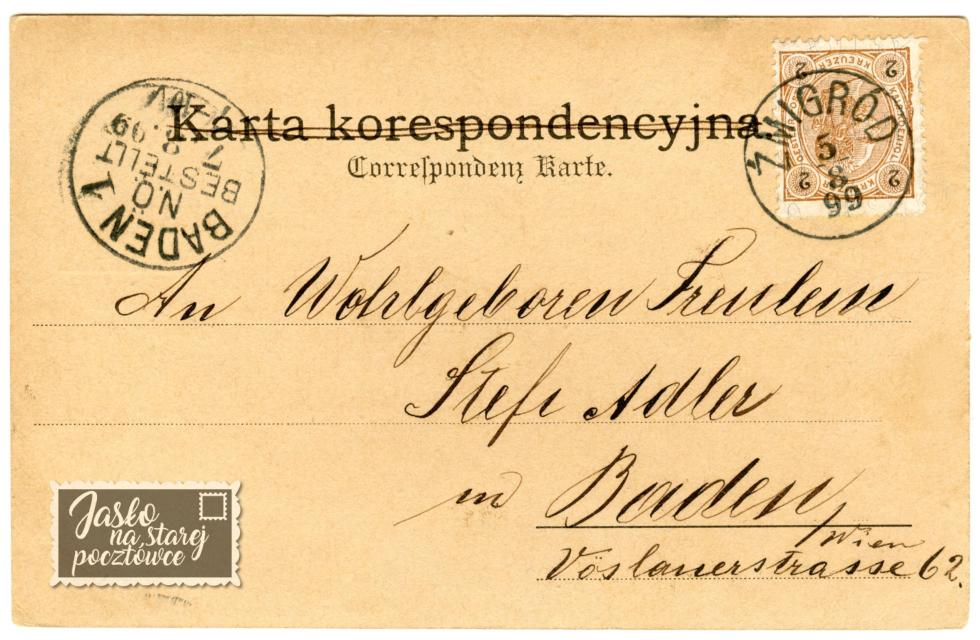 Karta korespondencyjna.
Correspondenz Karte.
BADEN 1
N.Ö.
BESTELLT
7. 8. 99
2 KREUZER 2
2 2
ŻMIGRÓD
5
8
99
An Wohlgeboren Freulein
Stefi Adler
in Baden,
Wien
Vöslauerstrasse 62.
Jasło
na starej
pocztówce